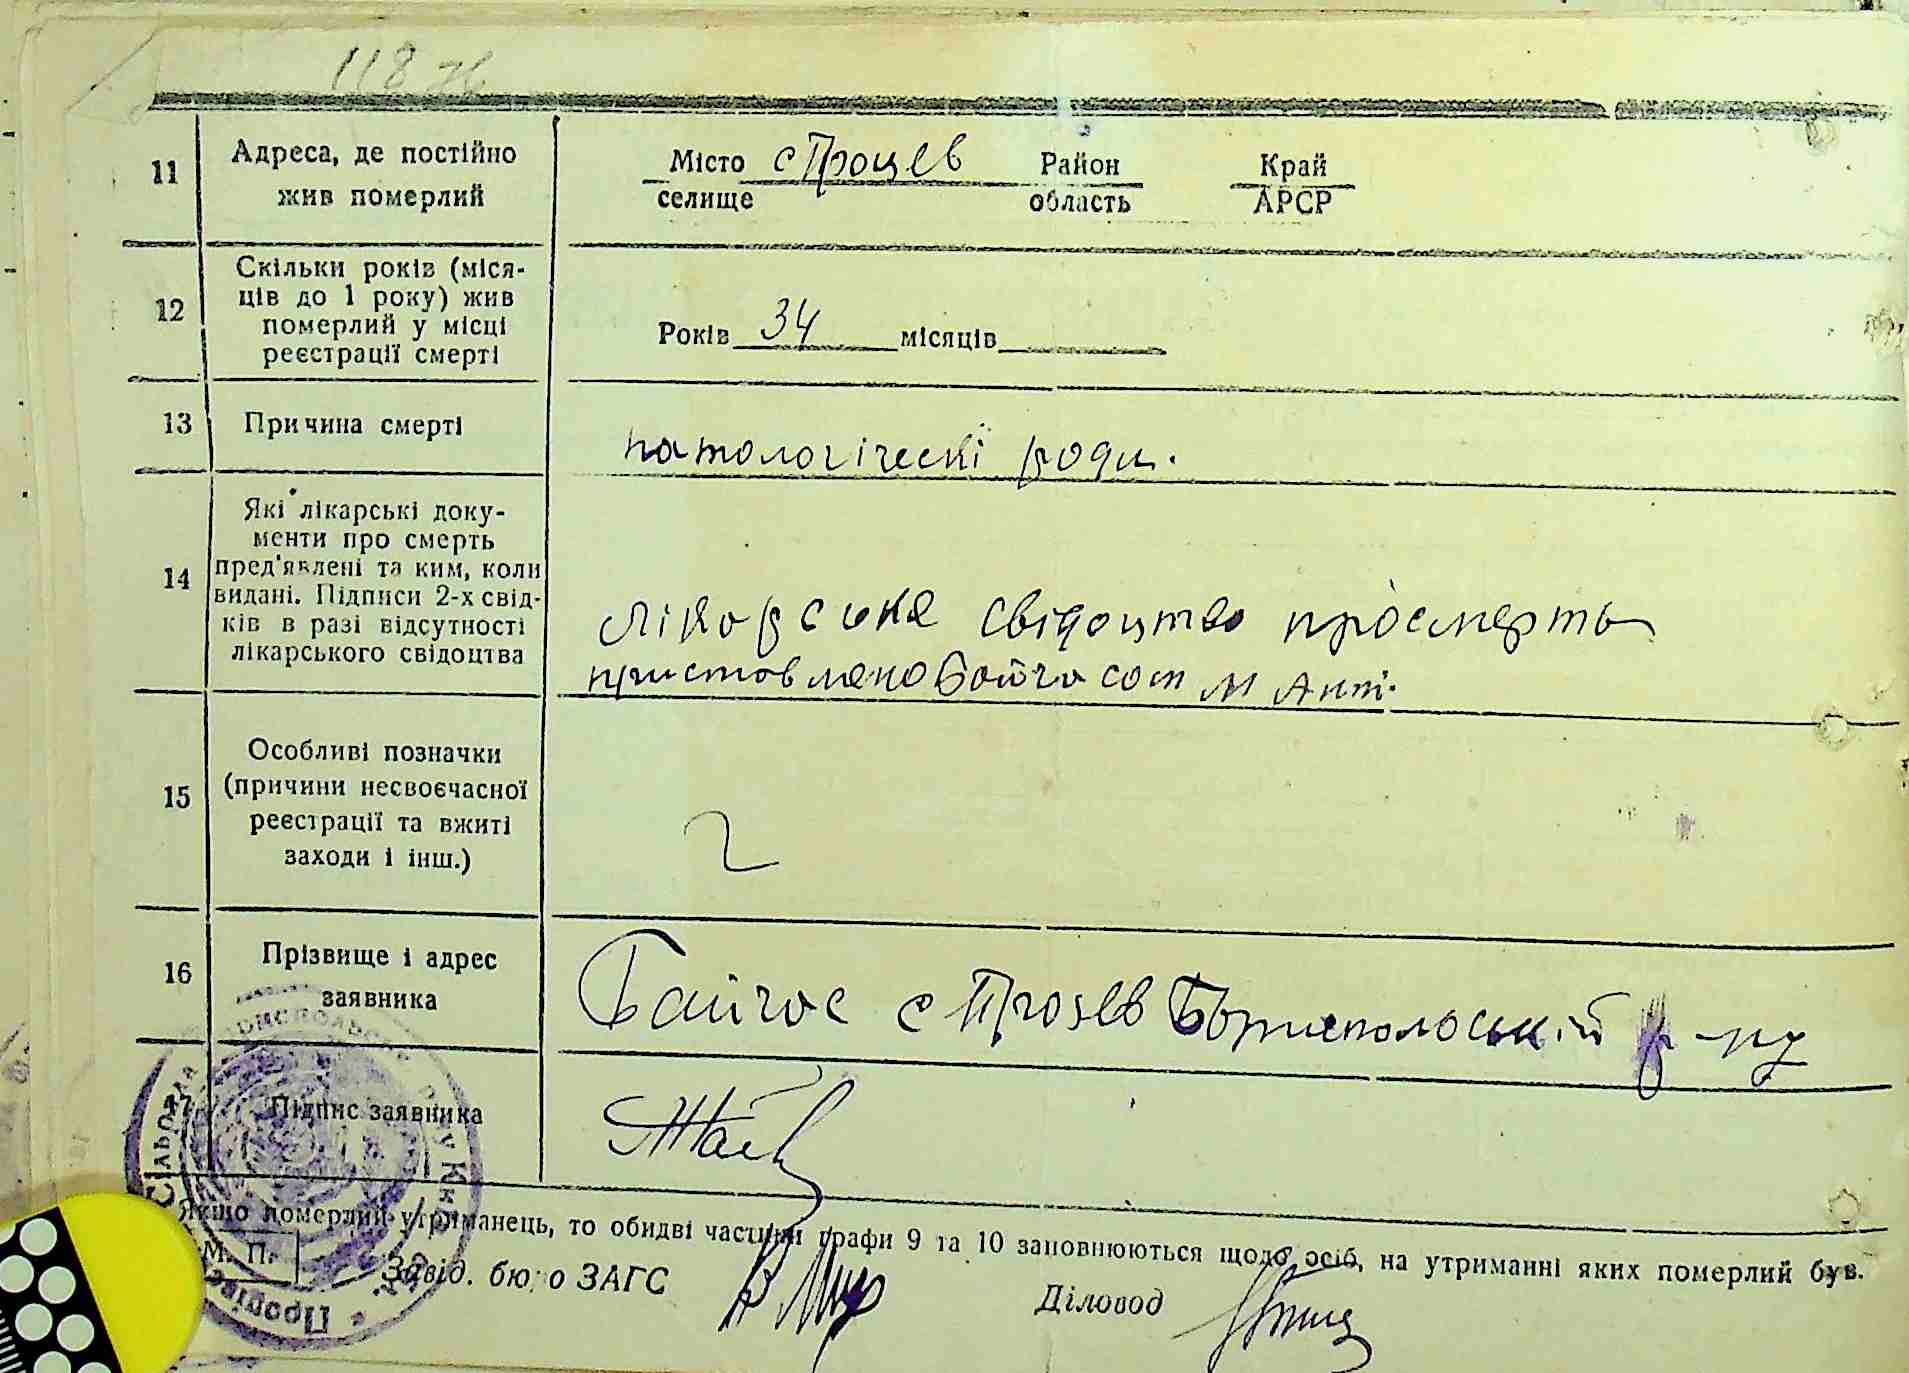 118 зв
11
Адреса, де постійно
жив померлий
Місто с Процев Район Край
селище область АРСР
12
Скільки років (міся-
ців до 1 року) жив
померлий у місці
реєстрації смерті
Років 34 місяців
13
Причина смерті
патологіческі роди.
14
Які лікарські доку-
менти про смерть
пред'явлені та ким, коли
видані. Підписи 2-х свід-
ків в разі відсутності
лікарського свідоцтва
лікарське свідоцтво про смерть
15
Особливі позначки
(причини несвоєчасної
реєстрації та вжиті
заходи і інш.)
16
Прізвище і адрес
заявника
с Процев Бориспольський р-ну
17
Підпис заявника
Якщо померлий утриманець, то обидві частини графи 9 та 10 заповнюються щодо осіб, на утриманні яких померлий був.
М. П.
Завід. бюро ЗАГС
Діловод